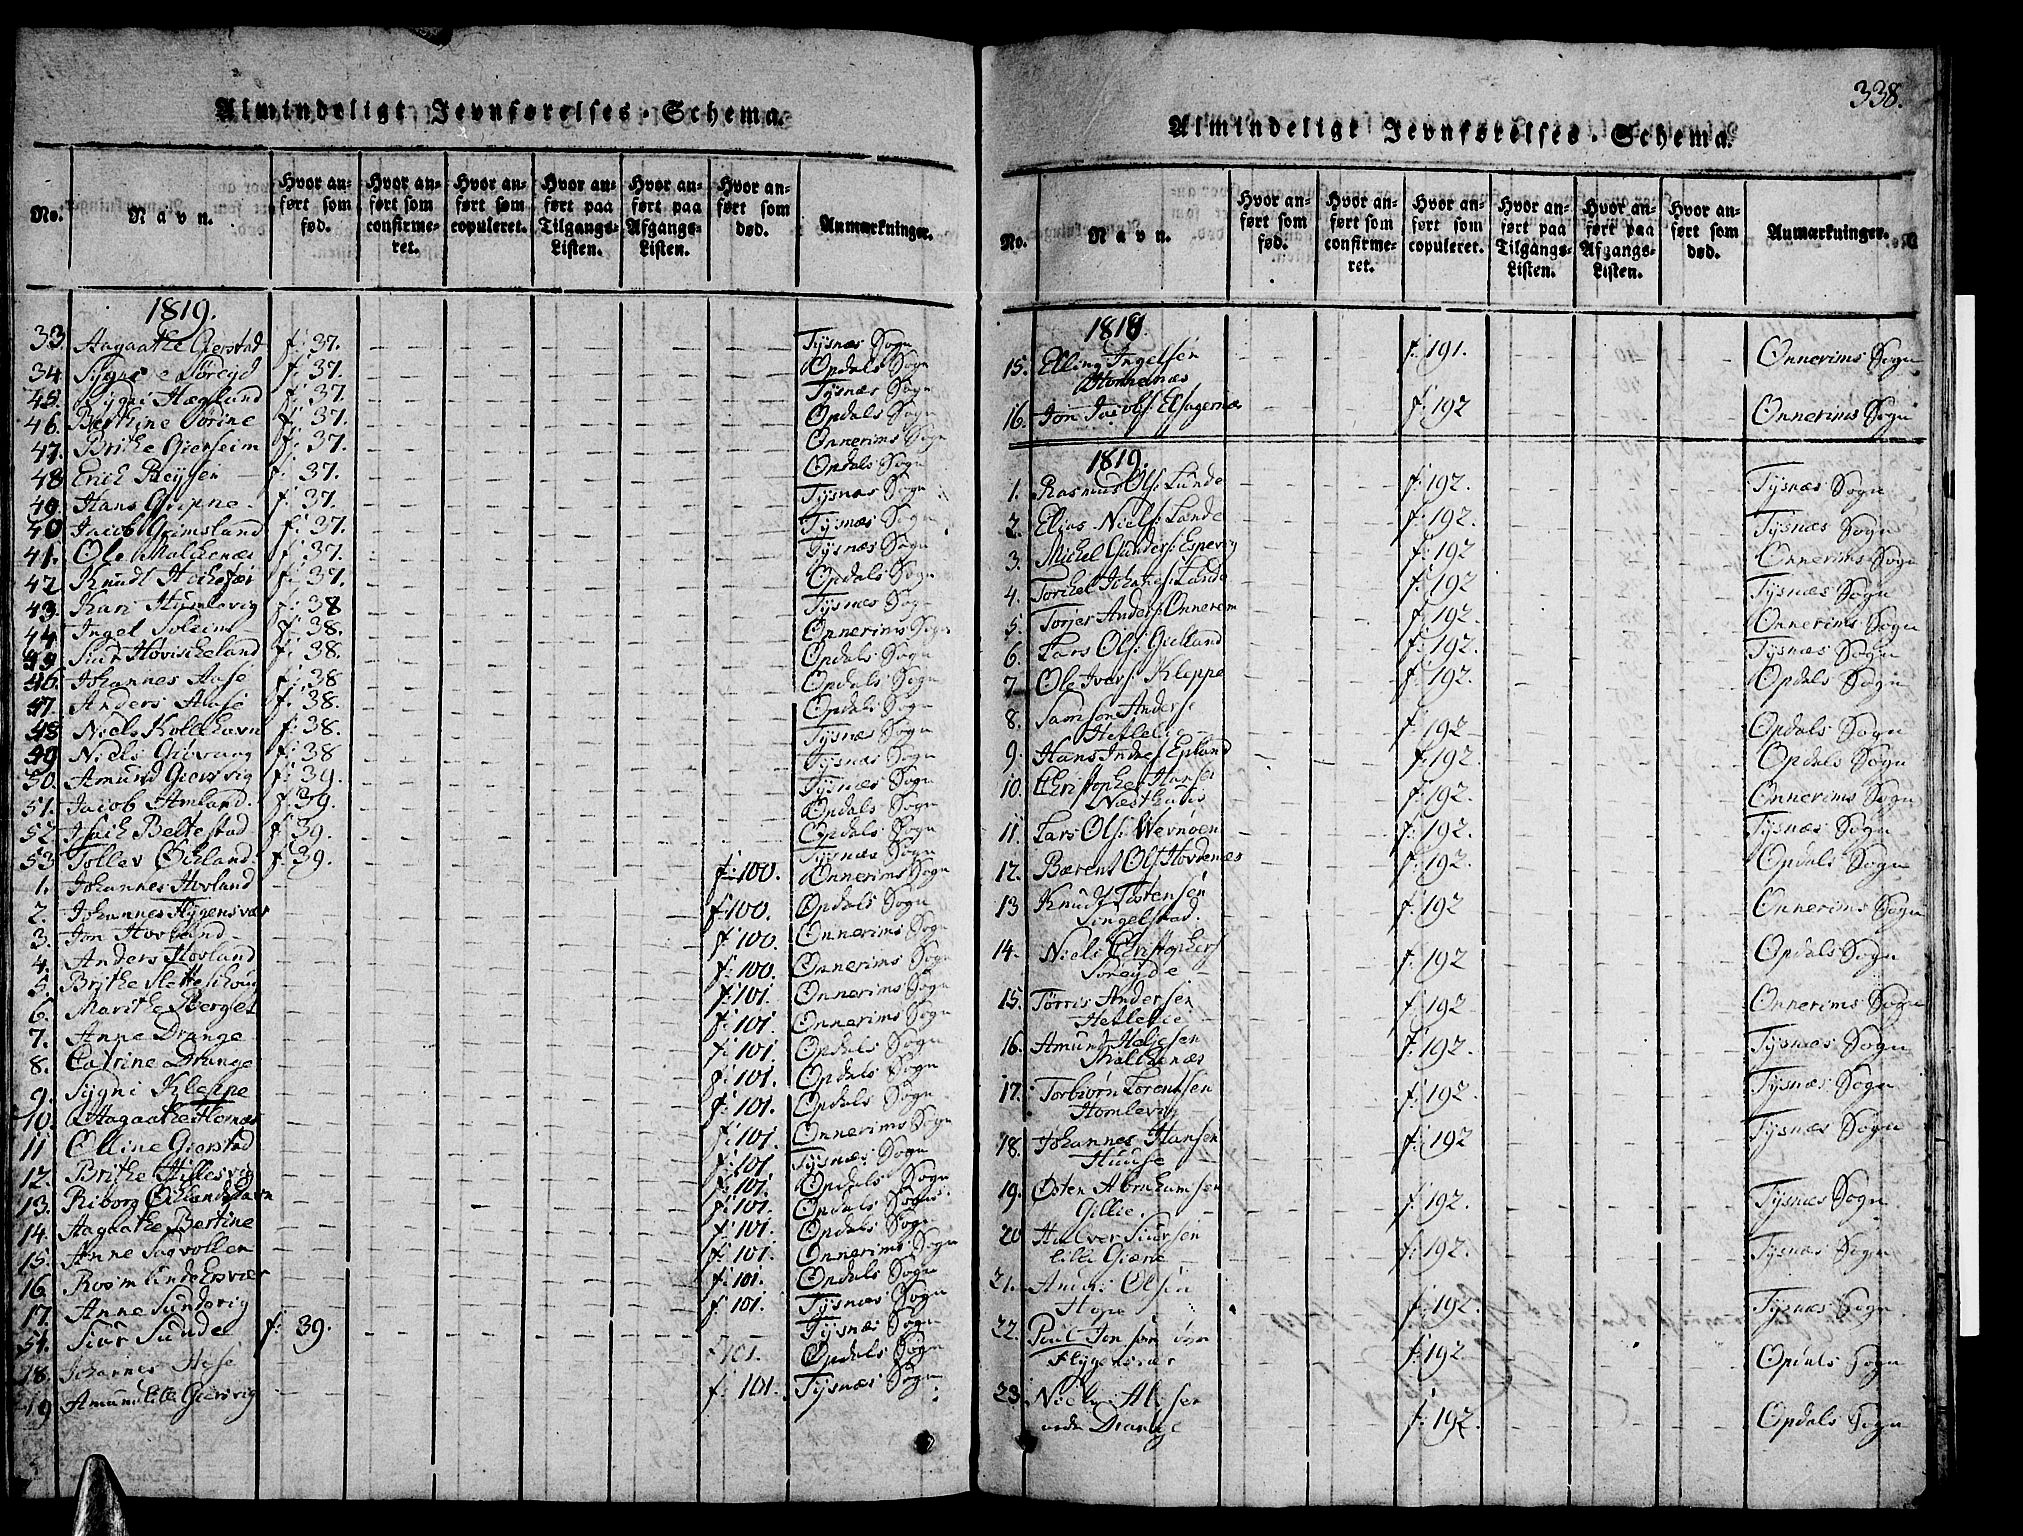 Almindeligt Jevnførelses-Schema.
No. Navn. Hvor anført som fød. Hvor anført som confirmeret. Hvor anført som copuleret. Hvor anført paa Tilgangs-Listen. Hvor anført paa Afgangs-Listen. Hvor anført som død. Anmærkninger.
1819.
33 Aagaathe Gierstad f: 37. Tysnæs Sogn
34 Sygni e Søreyd f: 37. Opdals Sogn
45. Sygni Hægland f: 37. Tysnæs Sogn
46. Berthine Sørine f: 37. Opdals Sogn
47. Brithe Gierseim f: 37. Onnerims Sogn
48 Erich Reigsen f: 37. Opdals Sogn
49. Hans Gripne f: 37. Tysnæs Sogn
40 Jacob Grimsland f: 37. Tysnæs Sogn
41. Ole Malchenæs f: 37. Tysnæs Sogn
42 Knudt f: 37. Opdals Sogn
43. Kari Humlevig f: 38 Tysnæs Sogn
44 Ingel Soleim f: 38. Onnerims Sogn
45 Siur Hovischeland f: 38. Opdals Sogn
46. Johannes Aase f: 38 Opdals Sogn
47. Anders Aase f: 38. Opdals Sogn
48 Niels Kolleshavn f: 38. Tysnæs Sogn
49 Niels f: 38 Tysnæs Sogn
50. Amund Giersvig f: 39. Tysnæs Sogn
51. Jacob Amland. f: 39. Opdals Sogn
52. Isach Beltestad f: 39. Opdals Sogn
53. Tollev Økland. f: 39. Tysnæs Sogn
1. Johannes Hovland f: 100. Onnerims Sogn
2. Johannes Flygensvær f: 100. Opdals Sogn
3. Jon Hovland f: 100. Onnerims Sogn
4. Anders Hovland f: 100. Onnerims Sogn
5. Brithe Sletteschoug f: 101. Onnerims Sogn
6. Marithe Berget f: 101. Onnerims Sogn
7. Anne Drange f: 101. Opdals Sogn
8. Catrine Drange f: 101. Opdals Sogn
9. Sygni Kleppe f: 101. Opdals Sogn
10. Aagaathe f: 101. Onnerims Sogn
11 Olline Gierstad f: 101. Tysnæs Sogn
12. Brithe Hillesvig f: 101. Opdals Sogn
13. Riborg Øklandshavn f: 101. Opdals Sogn
14. Aagaathe Bertine f: 101. Opdals Sogn
15. Anne Sagvollen f: 101. Onnerims Sogn
16. Rosmlinde Ersvær f: 101. Opdals Sogn
17. Anne Sundvig f: 101. Tysnæs Sogn
54. Siur Sunde f: 39. Tysnæs Sogn
18. Johannes f: 101. Opdals Sogn
19 Amund lille Giersvig f: 101. Tysnæs Sogn
338.
Almindeligt Jevnførelses-Schema.
No. Navn. Hvor anført som fød. Hvor anført som confirmeret. Hvor anført som copuleret. Hvor anført paa Tilgangs-Listen. Hvor anført paa Afgangs-Listen. Hvor anført som død. Anmærkninger.
1818
15. Elling Ingelsen f: 191. Onnerims Sogn
Honnenæs
16. Jon Jacobs: f: 192 Onnerims Sogn
1819.
1. Rasmus Ols: Lunde f: 192. Tysnæs Sogn
2. Elias Niels: Lande f: 192. Tysnæs Sogn
3. Michel Gunders: Espevig f: 192 Onnerims Sogn
4. Torchel Johanes: Lande f: 192 Tysnæs Sogn
5. Torjer Anders: Onnerem f: 192. Onnerims Sogn
6. Lars Ols: Gielland f: 192. Tysnæs Sogn
7. Ole Ivars: Kleppe f: 192. Opdals Sogn
8. Samson Anders:
Hetlelie f: 192 Opdals Sogn
9. Hans Endres Epland f: 192. Opdals Sogn
10. Christopher Hanse
Næsthuus f: 192. Onnerims Sogn
11. Lars Ols: Wernøen f: 192. Tysnæs Sogn
12. Bærent Ols Hovdenæs f: 192. Opdals Sogn
13 Knudt Tostensen f: 192 Onnerims Sogn
Singelstad.
14. Niels Christophers f: 192 Opdals Sogn
Søreyde
15. Tørris Andersen f: 192 Onnerims Sogn
Hetlelie
16. Amund Heljesen f: 192. Tysnæs Sogn
Malchenæs
17. Torbiørn Lorentsen f: 192. Tysnæs Sogn
Homlevig
18. Johannes Hansen f: 192 Tysnæs Sogn
Huuse
19. Østen Abrahamsen f: 192. Tysnæs Sogn
Gillie.
20 Halver Siursen f: 192. Tysnæs Sogn
lille Giære
21. Anders Olsen f: 192. Tysnæs Sogn
Hope
22. Poul Jonsøn øvre f: 192 Opdals Sogn
Flygensvær
23. Niels f: 192. Opdals Sogn
nedre Drange